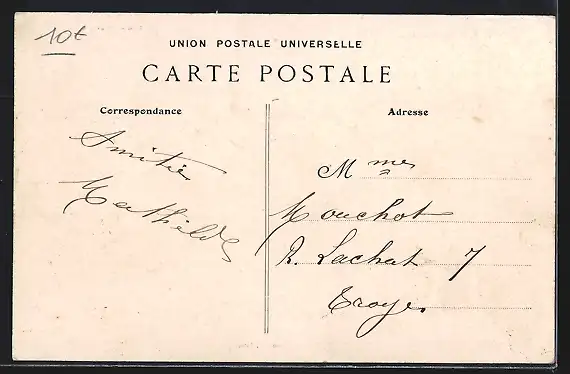 10t
UNION POSTALE UNIVERSELLE
CARTE POSTALE
Correspondance
Adresse
Amitiés
Mathilde
Mmes
Mouchot
R. Lachat 7
Troyes